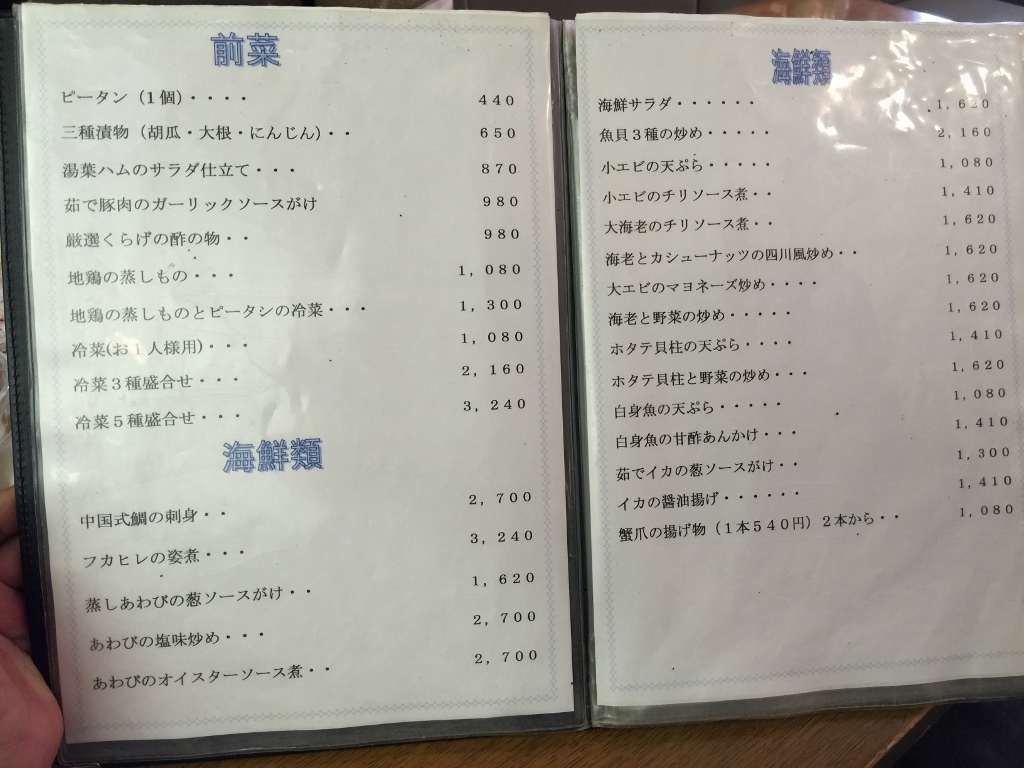 前菜
ピータン（１個）・・・・ ４４０
三種漬物（胡瓜・大根・にんじん）・・ ６５０
湯葉ハムのサラダ仕立て・・・ ８７０
茹で豚肉のガーリックソースがけ ９８０
厳選くらげの酢の物・・ ９８０
地鶏の蒸しもの・・・ １，０８０
地鶏の蒸しものとピータシの冷菜・・・ １，３００
冷菜(お１人様用)・・・ １，０８０
冷菜３種盛合せ・・・ ２，１６０
冷菜５種盛合せ・・・ ３，２４０
海鮮類
中国式鯛の刺身・・ ２，７００
フカヒレの姿煮・・・ ３，２４０
蒸しあわびの葱ソースがけ・・ １，６２０
あわびの塩味炒め・・・ ２，７００
あわびのオイスターソース煮・・ ２，７００
海鮮類
海鮮サラダ・・・・・・ １，６２０
魚貝３種の炒め・・・・・ ２，１６０
小エビの天ぷら・・・・・ １，０８０
小エビのチリソース煮・・ １，４１０
大海老のチリソース煮・・ １，６２０
海老とカシューナッツの四川風炒め・・ １，６２０
大エビのマヨネーズ炒め・・・・ １，６２０
海老と野菜の炒め・・・・・ １，６２０
ホタテ貝柱の天ぷら・・・・ １，４１０
ホタテ貝柱と野菜の炒め・・・ １，６２０
白身魚の天ぷら・・・・・ １，０８０
白身魚の甘酢あんかけ・・・ １，４１０
茹でイカの葱ソースがけ・・ １，３００
イカの醤油揚げ・・・・・・ １，４１０
蟹爪の揚げ物（１本５４０円）２本から・・ １，０８０